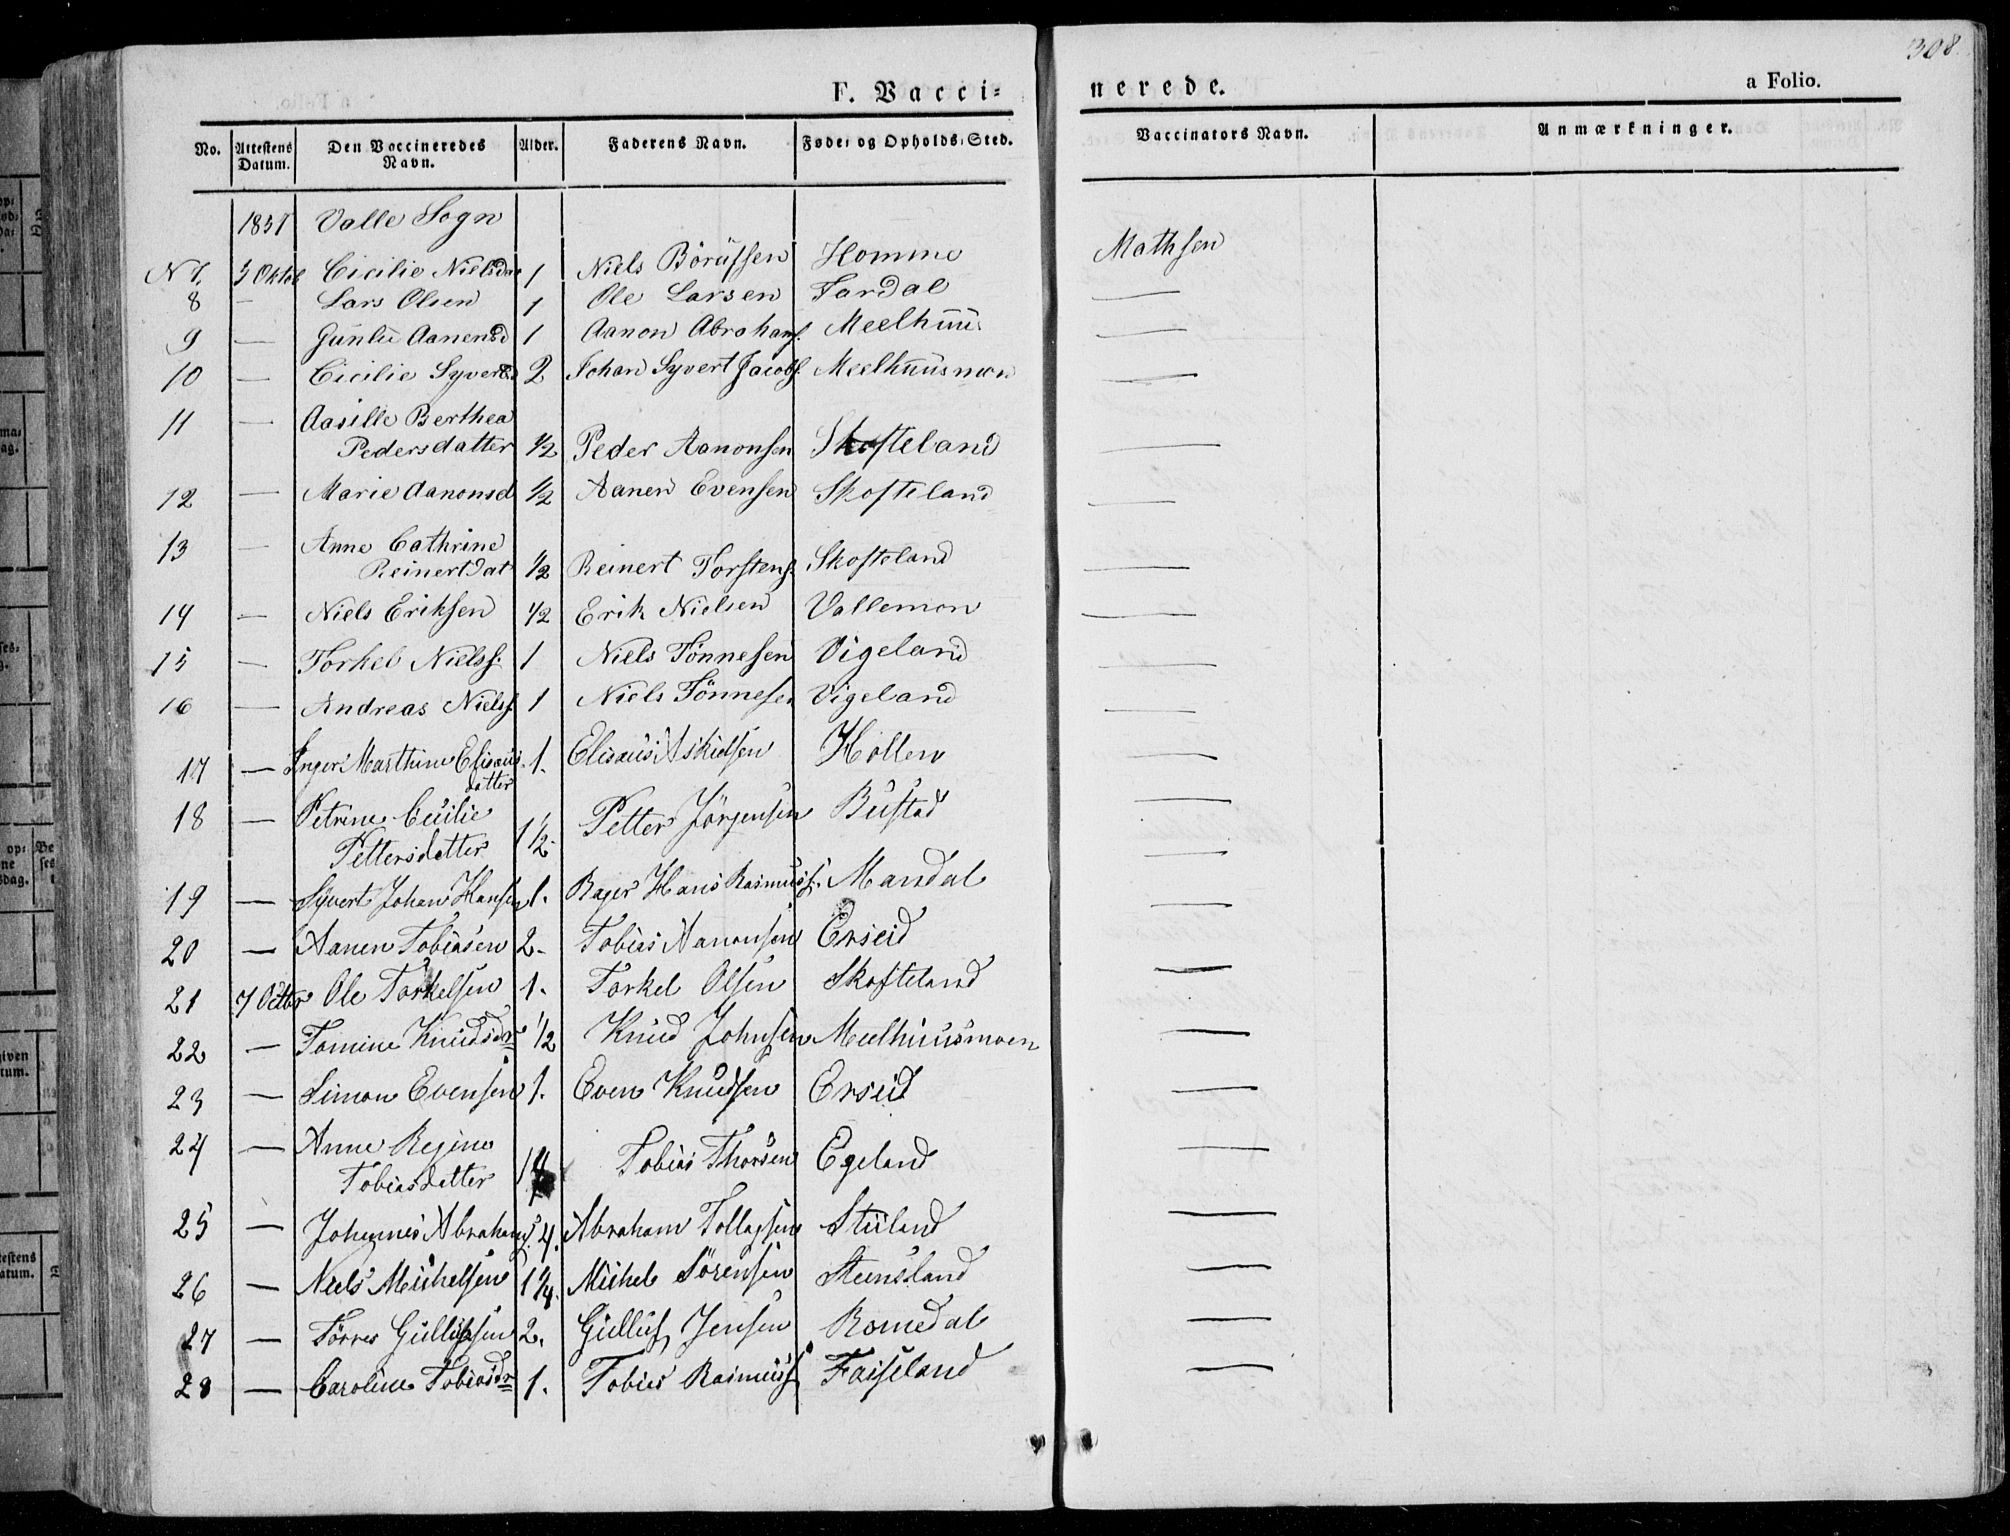 308.
F. Vacci-
nerede.
a Folio.
No. Attestens Datum. Den Vaccineredes Navn. Alder. Faderens Navn. Føde- og Opholds-Sted. Vaccinators Navn. Anmærkninger.
1837 Valle Sogn
N 7. 3 Oktob Cicilie Nielsdat 1 Niels Börüfsen Homme Mathsen
8 — Lars Olsen 1 Ole Larsen Fardal —
9 — Günlü Aanensd 1 Aanon Abrahamf. Meelhuus —
10 — Cicilie Syvertsd 2 Johan Syvert Jacobf. Meelhuusmoen —
11 — Aasille Berthea
Pedersdatter 1/2 Peder Aanonsen Skofteland —
12 — Marie Aanonsd 1/2 Aanen Evensen Skofteland —
13 — Anne Cathrine
Reinertdat 1/2 Reinert Torstens. Skofteland —
14 — Niels Eriksen 1/2 Erik Nielsen Vallemon —
15 — Torkel Nielsf. 1 Niels Tönnesen Vigeland —
16 — Andreas Nielsf 1 Niels Tönnesen Vigeland —
17 — Inger Marthine Elisæus 1. Elisæus Askildsen Hollen —
datter
18 — Petrine Cecilie
Pettersdatter 1 1/2. Petter Jörgensen Büstad —
19 — Syvert Johan Hansen 1. Bager Hans Rasmusf. Mandal —
20 — Aanen Tobiasen 2. Tobias Aanonsen Erseid —
21 7 Octbr Ole Torkelsen 1. Torkel Olsen Skofteland —
22 — Tomine Knüdsdr 1/2 Knud Johnsen Meelhuusmoen —
23 — Simon Evensen 1. Even Knudsen Erseid —
24 — Anne Regine
Tobiasdatter 1 Tobias Thorsen Egeland —
25 — Johannes Abrahamf. 4. Abraham Tollagsen Stüland —
26 — Niels Michelsen 1 1/4. Michel Sörensen Steensland —
27 — Törres Güllufsen 2. Gülluf Jensen Romedal —
28 — Caroline Tobiasdr 1. Tobias Rasmusf Faiseland —